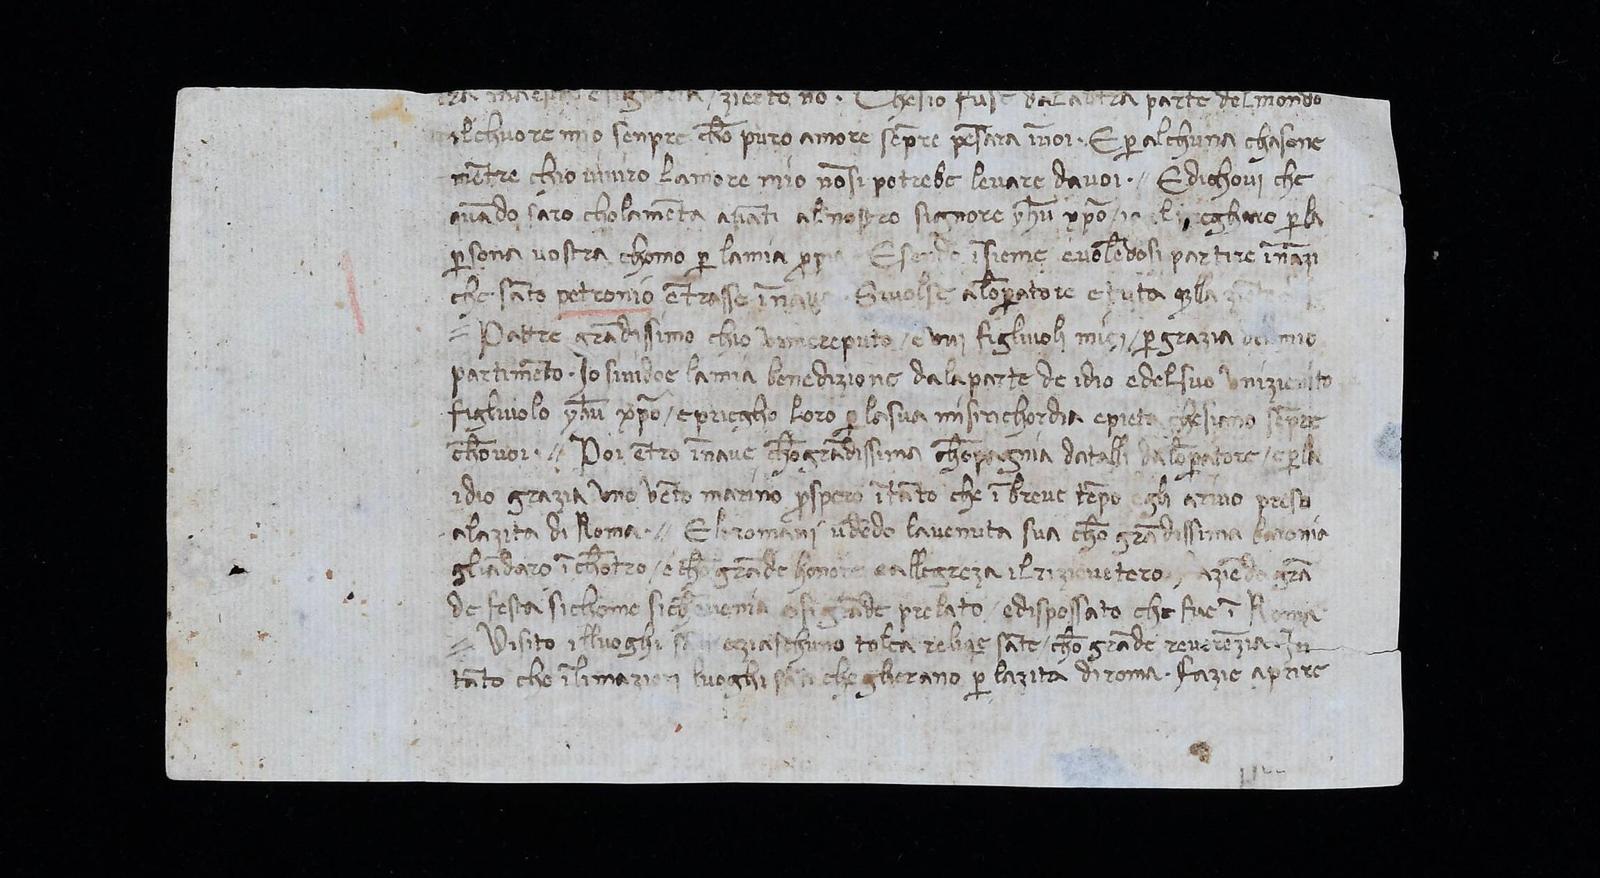 zierto no · Chesio fuse dalaltra parte del mondo
ilchuore mio senpre chō puro amore sēpre pēsara ī voi · E p̱ alchuna chasone
mētre chio viviro lamore mio nōsi potrebe levare davoi · // E dichovi che
quādo saro cholamēta avāti al nostro signore yħu xp̄o / p̱ la
p̱sona vostra chomo p̱ lamia īsieme evolēdosi partire ināzi
che sāto petronio ētrasse ī nave · Sivolse alōp̱atore e tuta q̄lla
// Patre grādissimo chio / e vui figluioli miei / p̱ grazia del mio
partimēto · Io sividoe lamia benedizione dalaparte de idio edelsuo unizienito
figluiolo yħu xp̄o / epriegho loro p̱ lasua misirichordia epieta chesiano sēpre
chōvoi · // Poi ētro ī nave chōgrādissima chōpagnia datalli dalōp̱atore / e p̱ la
idio grazia uno vēto marino p̱spero ītāto che ī breve tēpo egli arivo preso
alazita di Roma · // E li romani udēdo lavenuta sua chō grādissima baronia
gliādaro ī chōtro / e chō grāde honore eallegreza ilrizievetero aziēdo grā
de festa sichome si prelato / edispossato che fue ī Roma
// Visito illuoghi eziaschuno tolea reliq̄e sāte / chō grāde reverēzia · In
tāto che īlimazieri luoghi sāti che gherano p̱ lazita diroma · fazie aprire